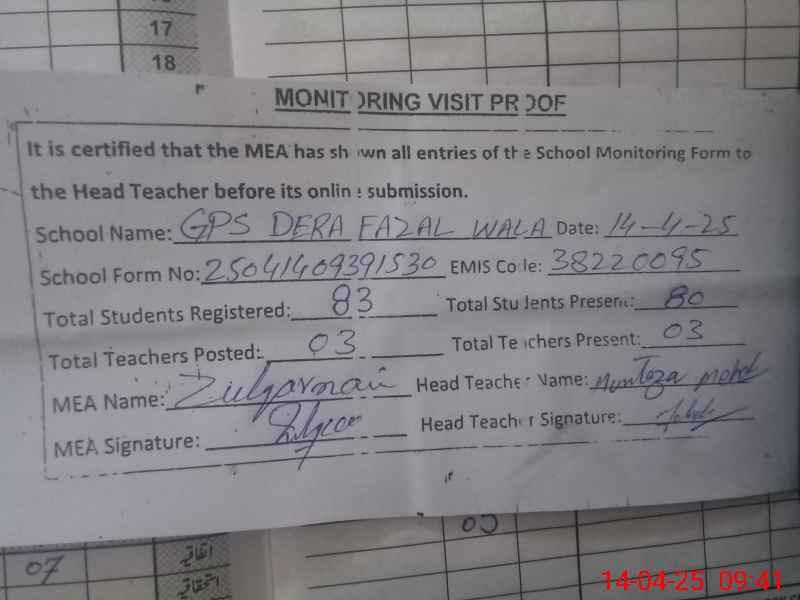 17
18
MONITORING VISIT PROOF
It is certified that the MEA has shown all entries of the School Monitoring Form to
the Head Teacher before its online submission.
School Name: GPS DERA FAZAL WALA Date: 14-4-25
School Form No: 25041409391530 EMIS Code: 38220095
Total Students Registered: 83 Total Students Present: 80
Total Teachers Posted: 03 Total Teachers Present: 03
MEA Name: Zulqarnain Head Teacher Name: Muntaza Mehdi
MEA Signature: Head Teacher Signature:
03
07 اتفاقیہ
استحقاقیہ
14-04-25 09:41